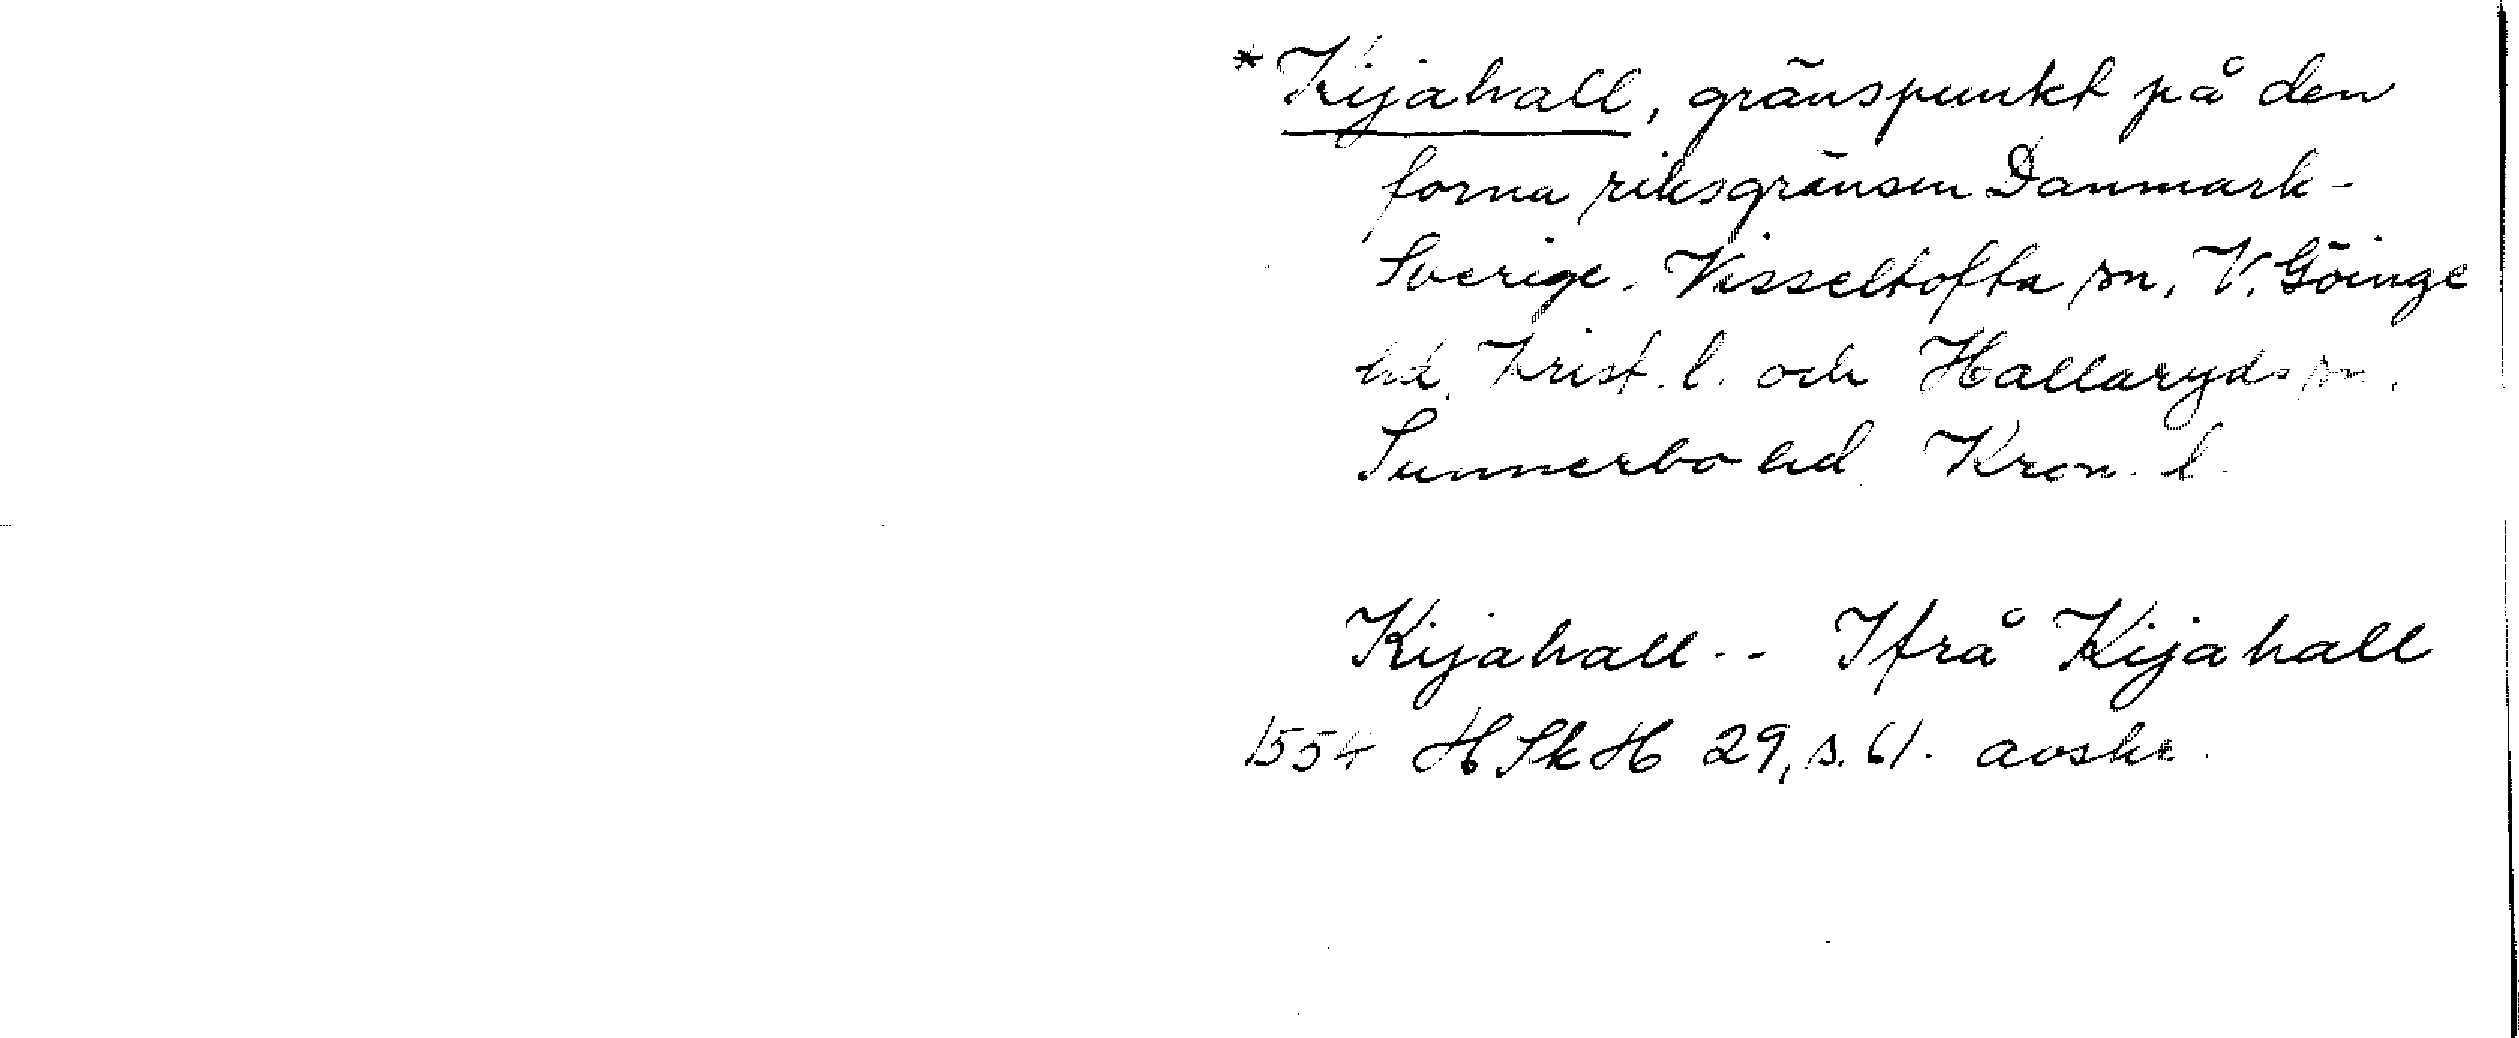 * Kijahall, gränspunkt på den
forna riksgränsen Danmark-
Sverige. Visseltofta sn, V. Göinge
hd, Krist. l. och Hallaryds sn,
Sunnerbo hd, Kron. l.
Kijahall -- Ifrå Kijahall
1554 HSkH 29, s. 61. avskr.